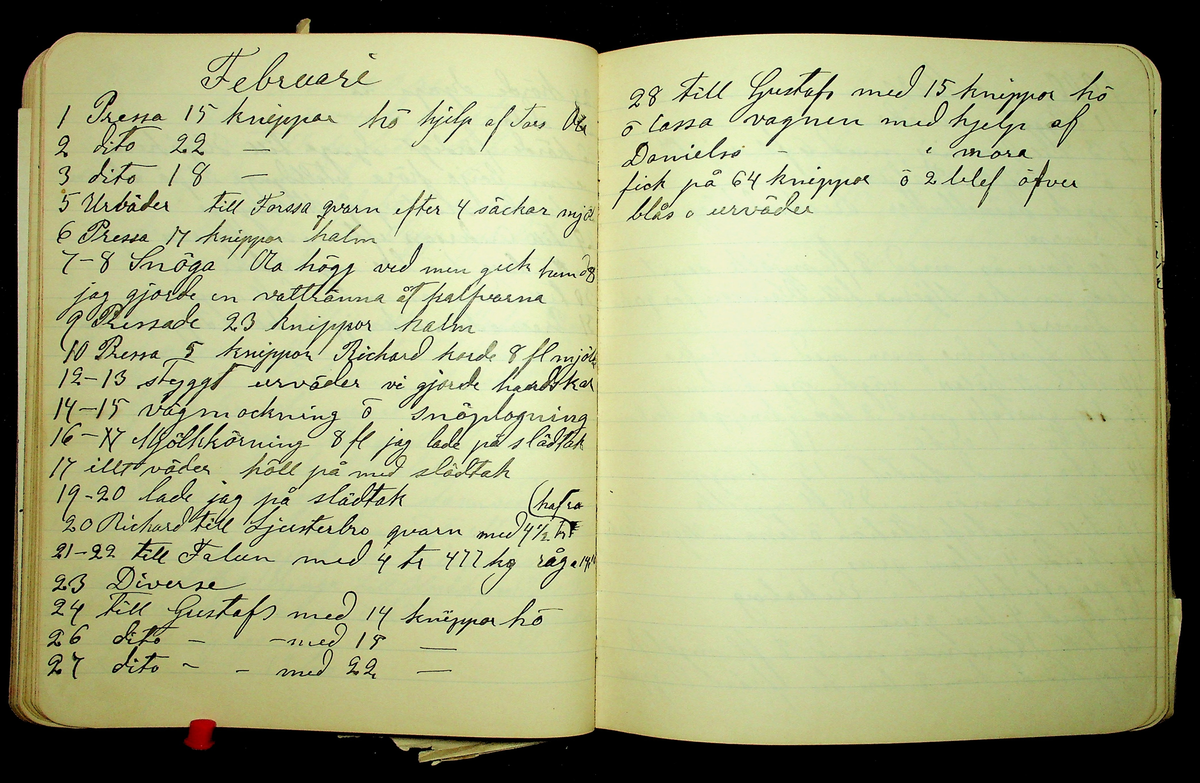 Februari
1 Pressa 15 knippor hö hjelp af Tors Ola
2 dito 22 —
3 dito 18 —
5 Urväder till Forssa qvarn efter 4 säckar mjöl
6 Pressa 17 knippor halm
7-8 Snöga Ola högg ved men geck hem d 8
jag gjorde en vattränna åt kalfvarna
9 Pressade 23 knippor halm
10 Pressa 5 knippor Richard korde 8 fl mjölk
12-13 styggt urväder vi gjorde handskar
14-15 vägmockning o snöplogning
16-17 Mjölkkörning 8 fl jag lade på slädtak
17 illt väder höll på med slädtak
19-20 lade jag på slädtak
(hafra
20 Richard till Ljusterbro qvarn med 4 1/2 tr
21-22 till Falun med 4 tr 477 kg råg a
23 Diverse
24 till Gustafs med 14 knippor hö
26 dito - - med 19 —
27 dito - - med 22 —
28 till Gustafs med 15 knippor hö
o lassa vagnen med hjelp af
Daniels - i mora
fick på 64 knippor o 2 blef öfver
blås o urväder